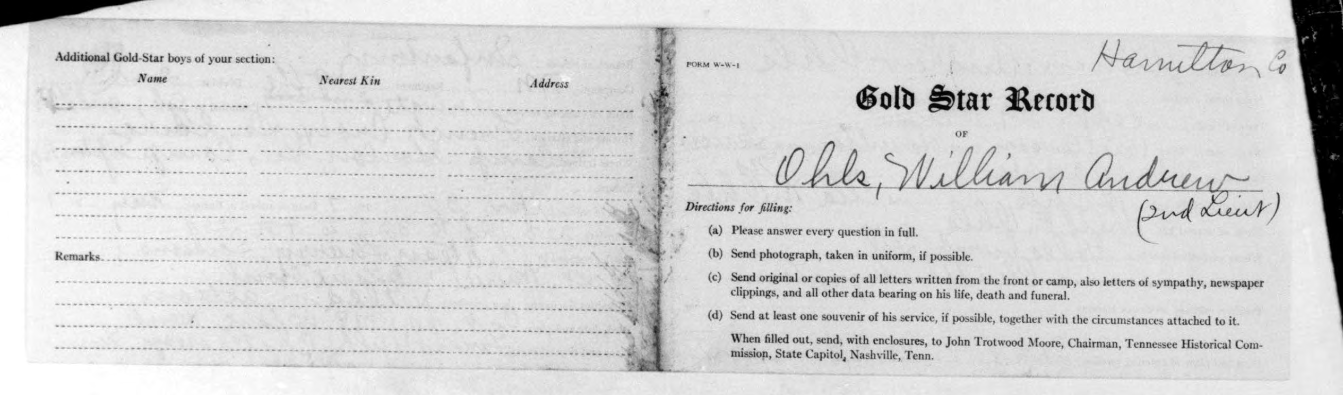 Additional Gold-Star boys of your section:
Name Nearest Kin Address
Remarks
FORM W-W-1
Hamilton Co
Gold Star Record
OF
Ohls, William Andrew
(2nd Lieut)
Directions for filling:
(a) Please answer every question in full.
(b) Send photograph, taken in uniform, if possible.
(c) Send original or copies of all letters written from the front or camp, also letters of sympathy, newspaper
clippings, and all other data bearing on his life, death and funeral.
(d) Send at least one souvenir of his service, if possible, together with the circumstances attached to it.
When filled out, send, with enclosures, to John Trotwood Moore, Chairman, Tennessee Historical Com-
mission, State Capitol, Nashville, Tenn.